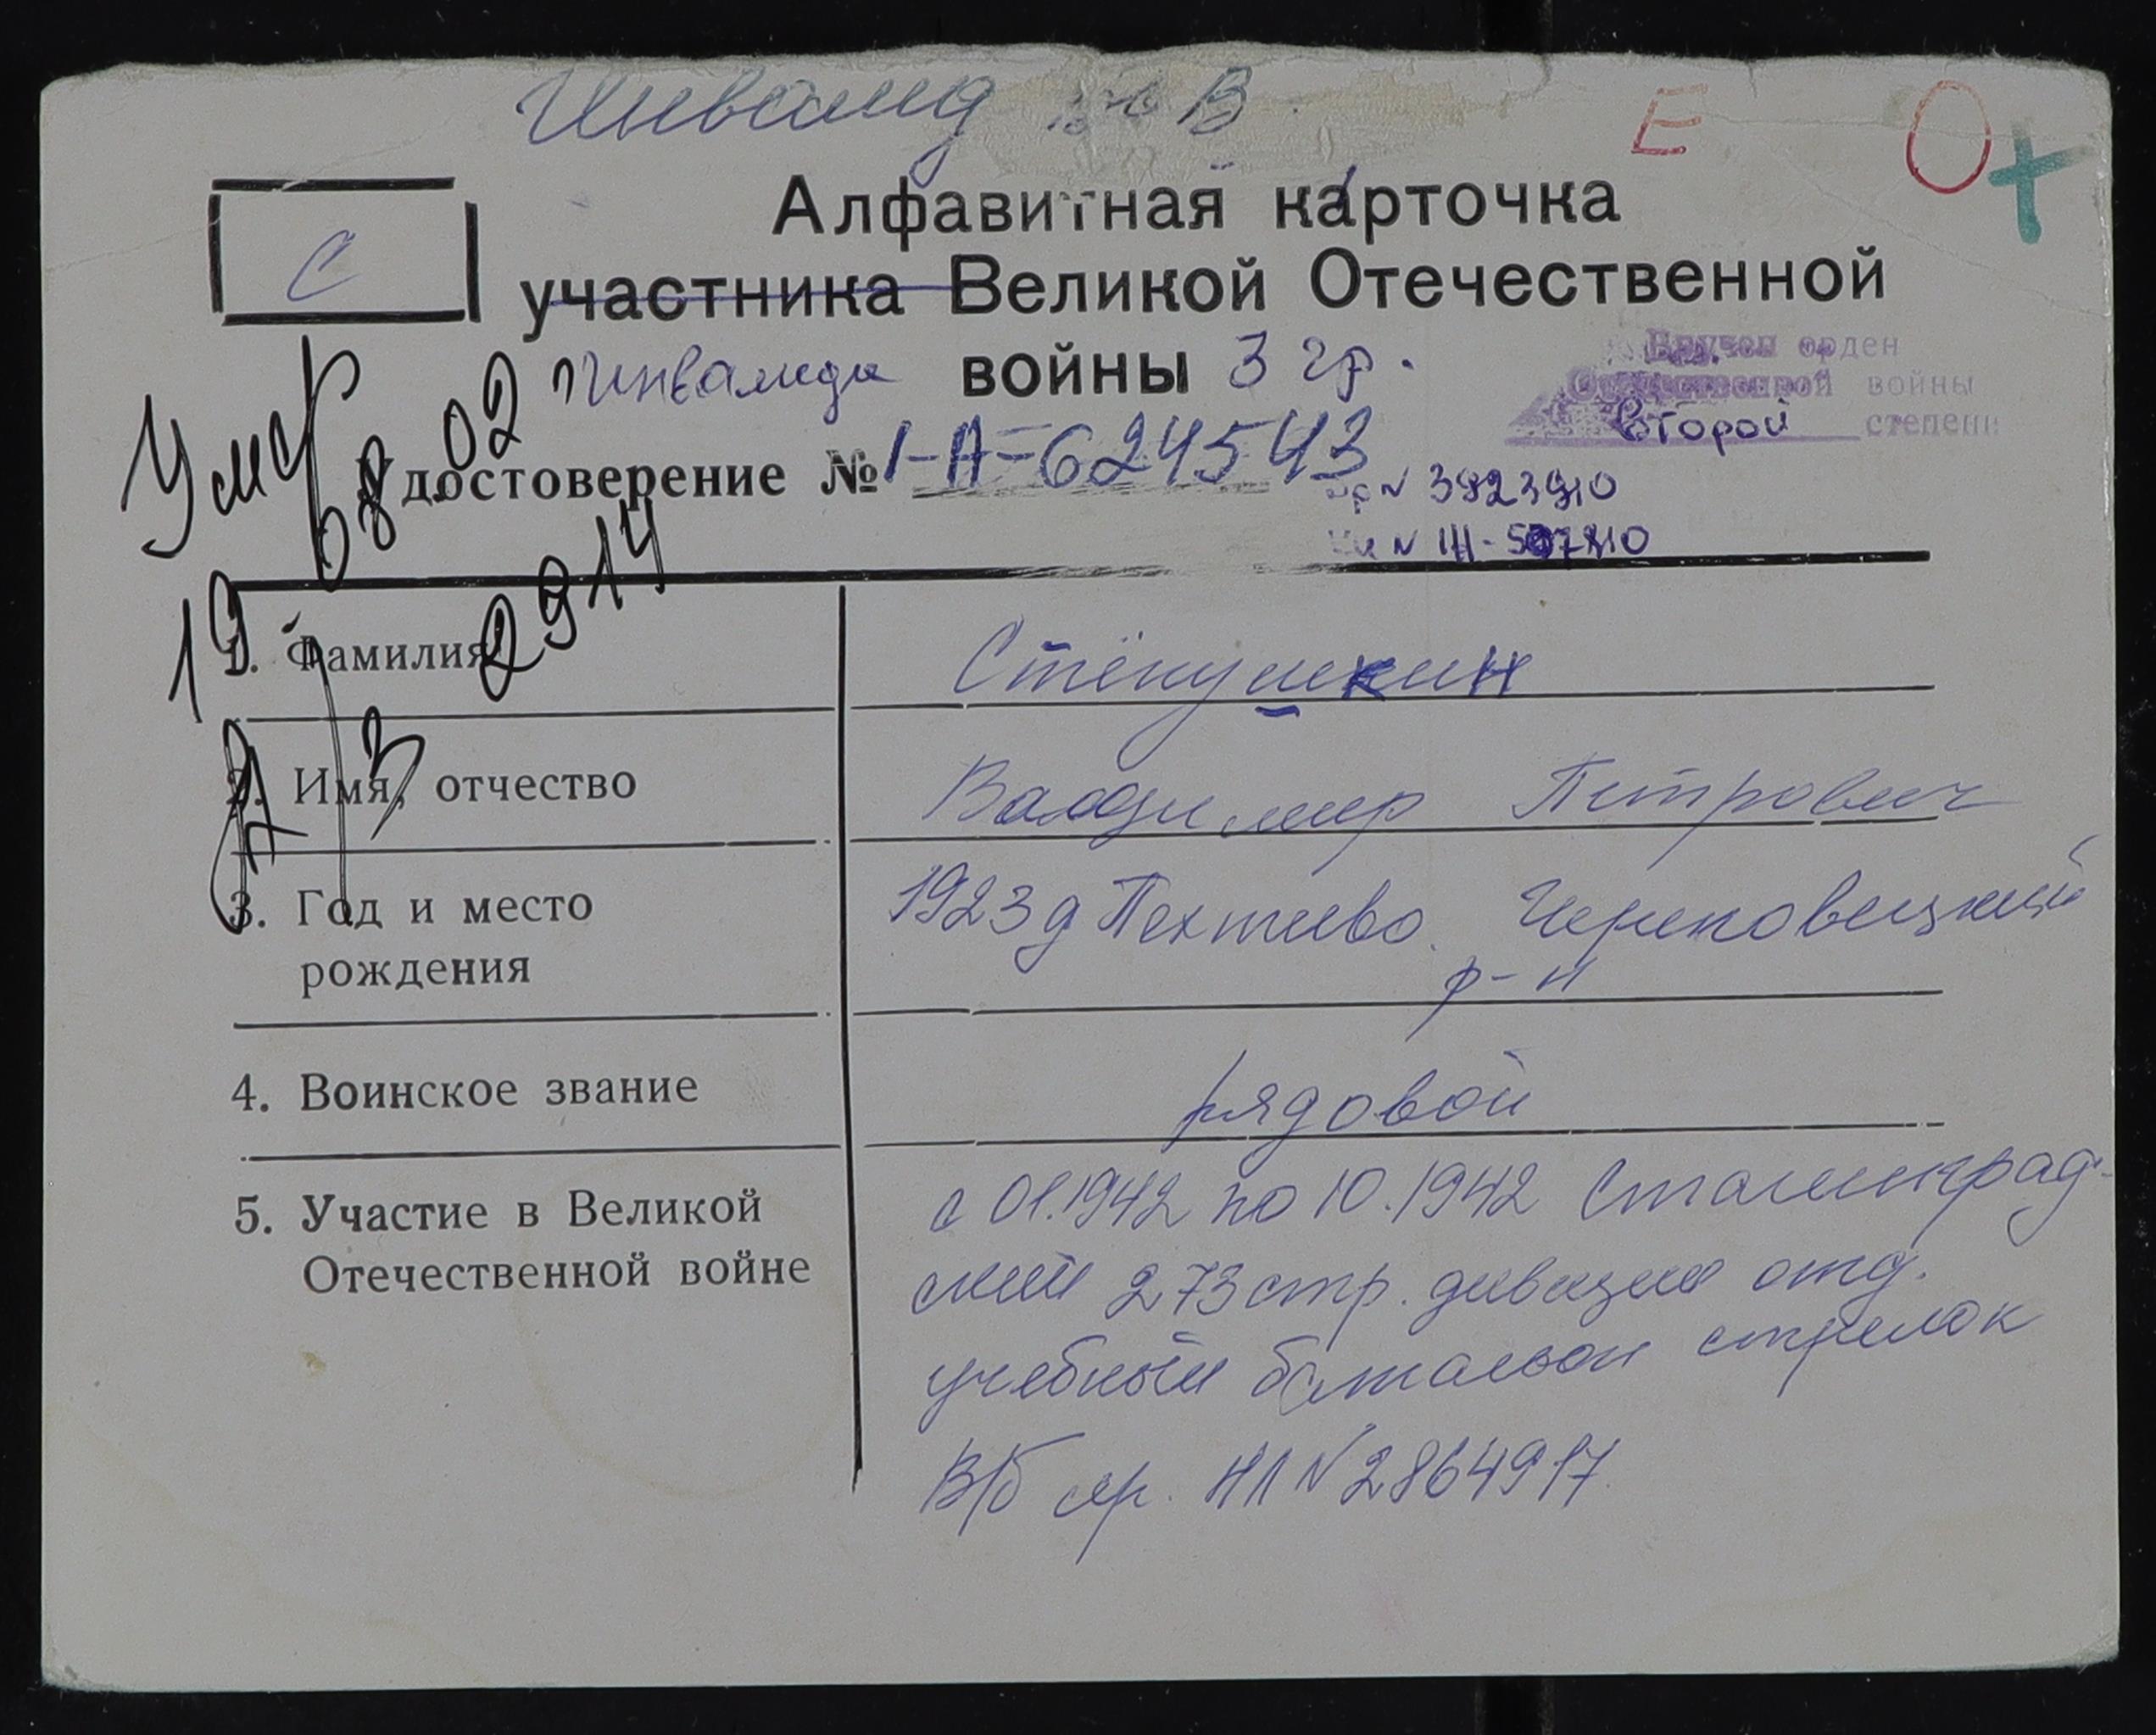 Инвалид В
Е О+
Алфавитная карточка
С
участника Великой Отечественной
инвалида войны 3 гр.
Вручен орден
Отечественной войны
Второй степени
Умер 02
Удостоверение № 1-А=624543
№ 3923910
№ III-
2914
19
1. Фамилия Стёкушкин
2. Имя, отчество Владимир Петрович
3. Год и место рождения 1923 д Пехтеево. Череповецкий
р-н
4. Воинское звание рядовой
5. Участие в Великой Отечественной войне с 01.1942 по 10.1942 Сталинград-
ский 273 стр. дивизия отд.
учебный батальон стрелок
В/б сер. НЛ № 2864917